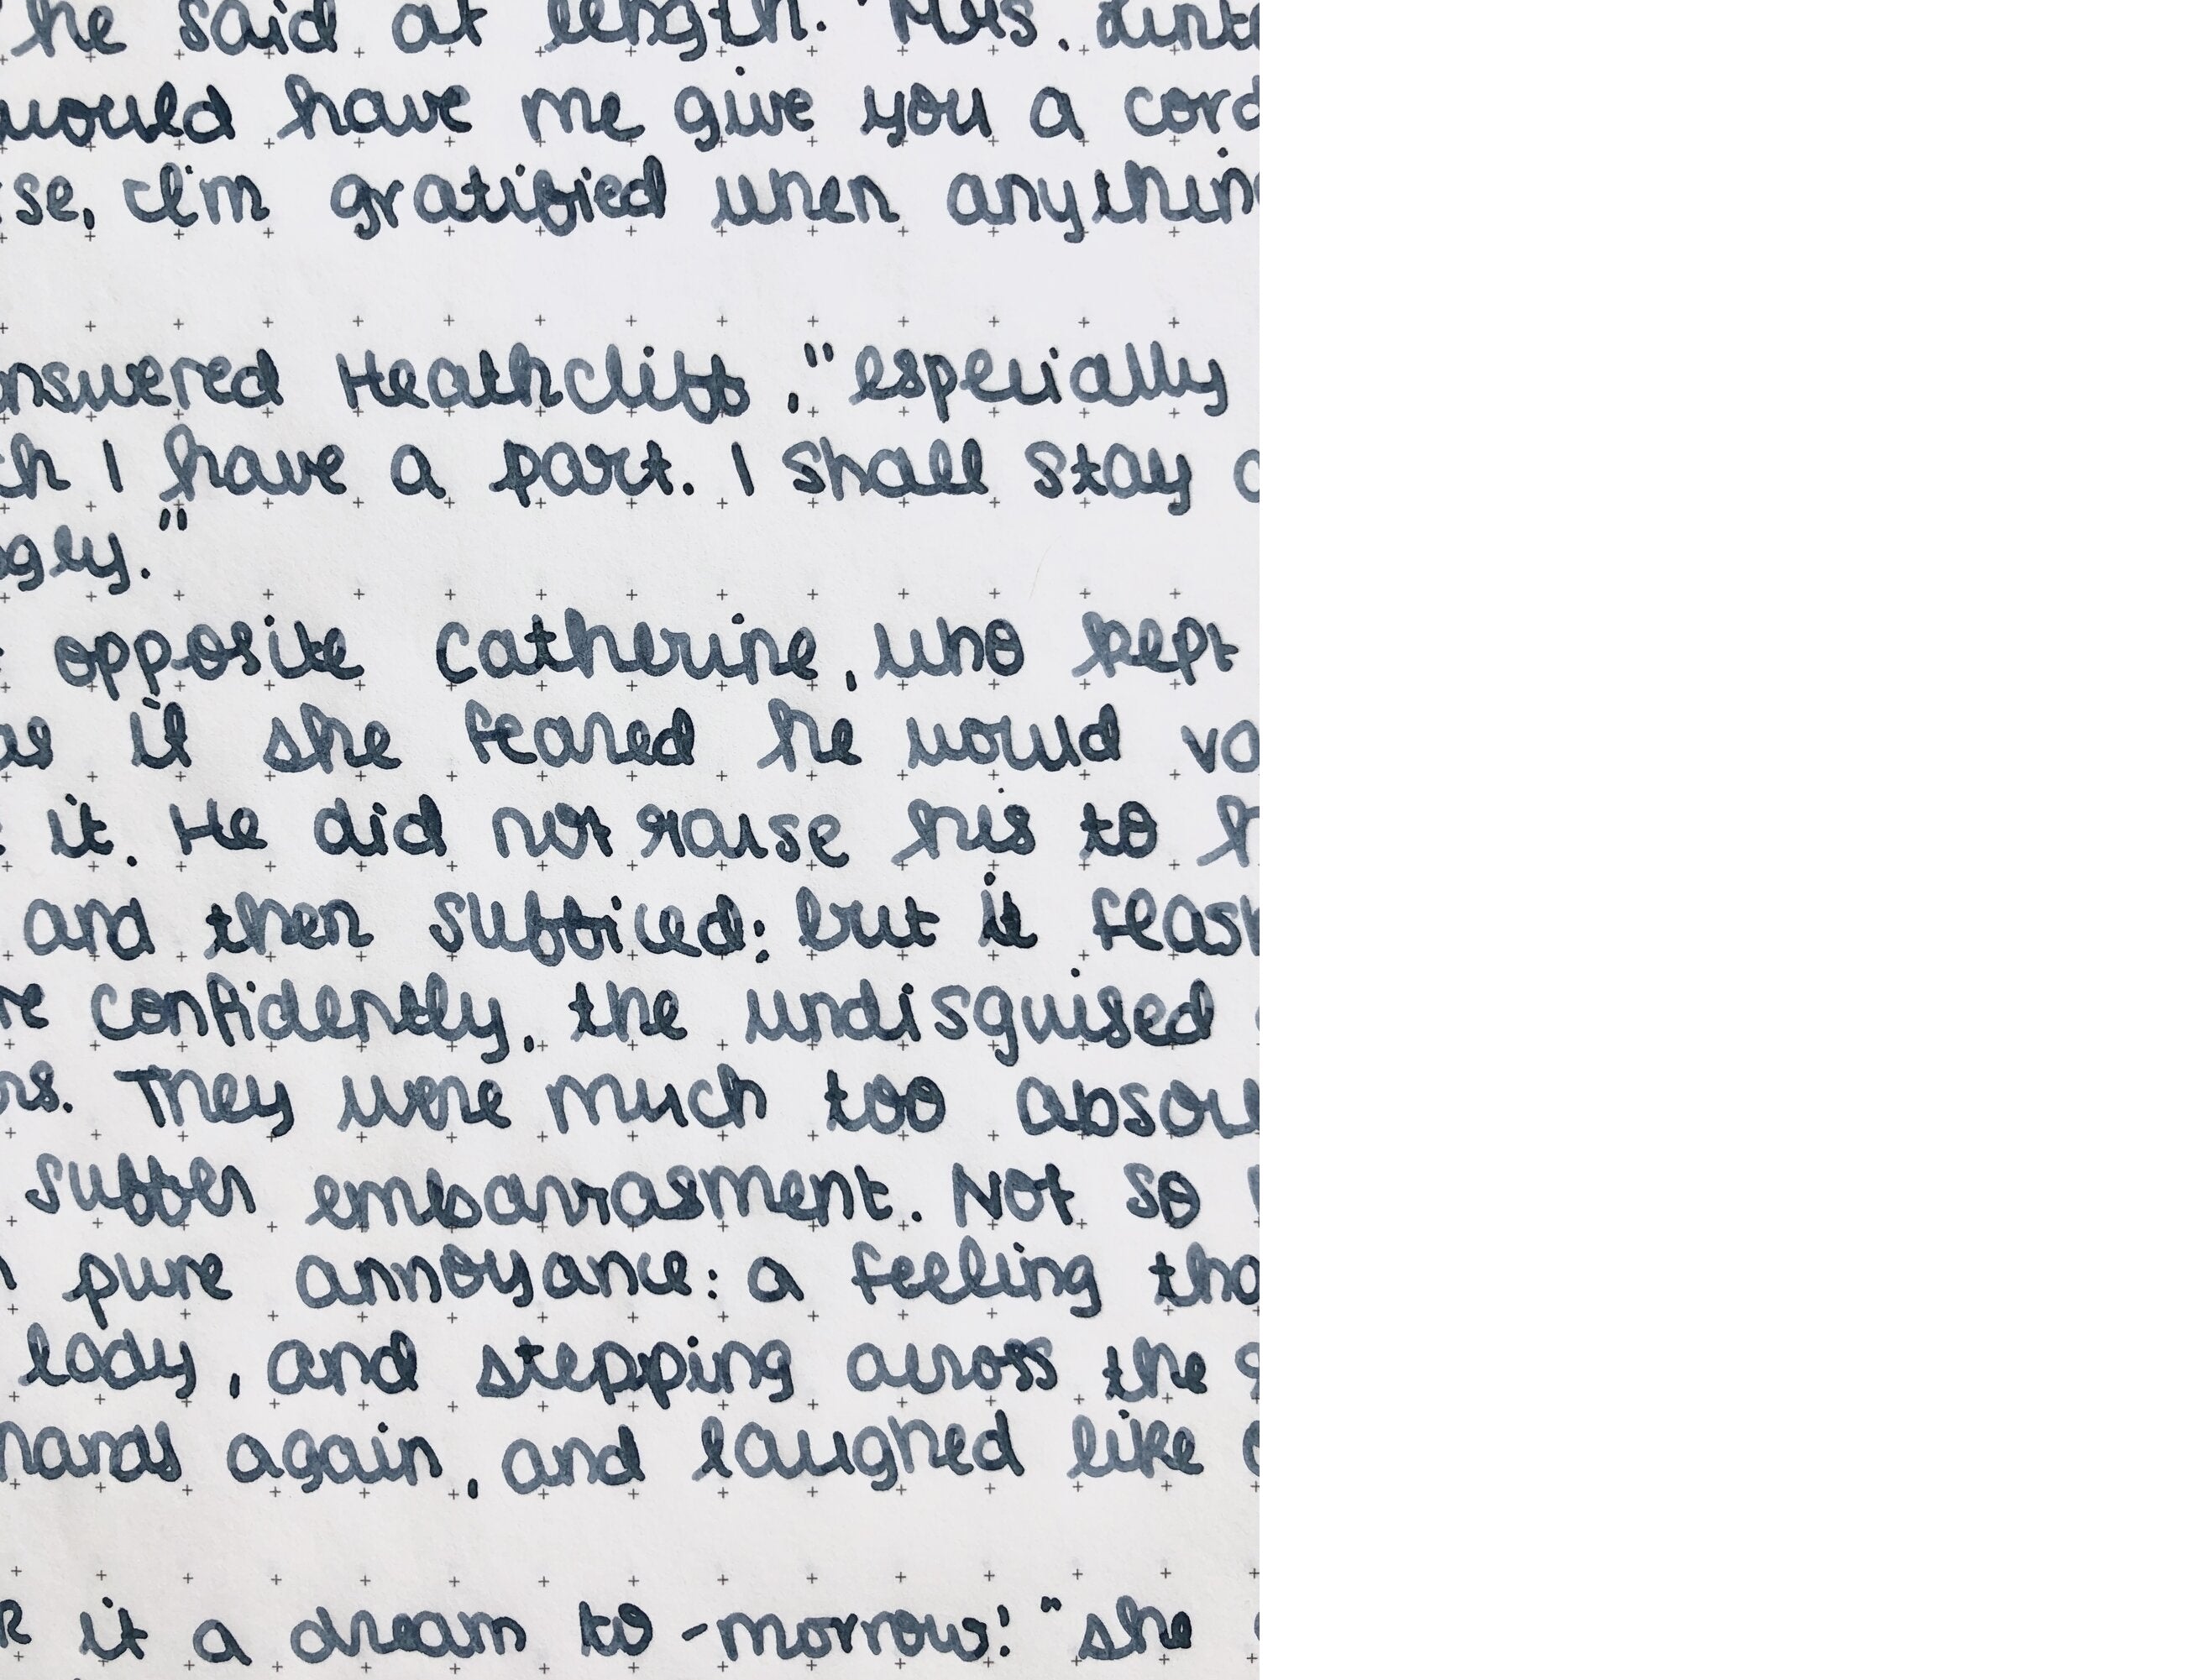 he said at length. "Mrs. Lint
would have me give you a cord
se, I'm gratified when anythin
nswered Heathcliff, "especially
ch I have a part. I shall stay
gly."
opposite Catherine, who kept
as if she feared he would va
it. He did not raise his to h
and then sufficed; but it flash
re confidently, the undisguised
rs. They were much too absor
suffer embarrasment. Not so
pure annoyance: a feeling tha
lady, and stepping across the
hands again, and laughed like
k it a dream to-morrow!" she